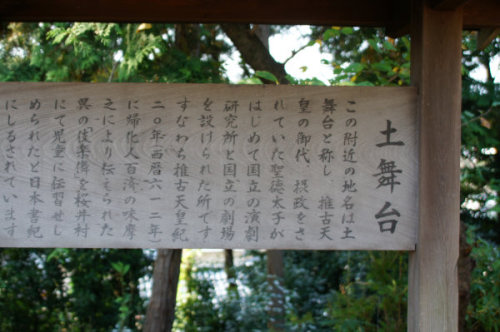 土舞台
この附近の地名は土
舞台と称し 推古天
皇の御代 摂政をさ
れていた聖徳太子が
はじめて国立の演劇
研究所と国立の劇場
を設けられた所です
すなわち推古天皇紀
二〇年(西暦六一二年)
に帰化人百済の味摩
之により伝えられた
呉の伎楽儛を桜井村
にて児童に伝習せし
められたと日本書紀
にしるされています